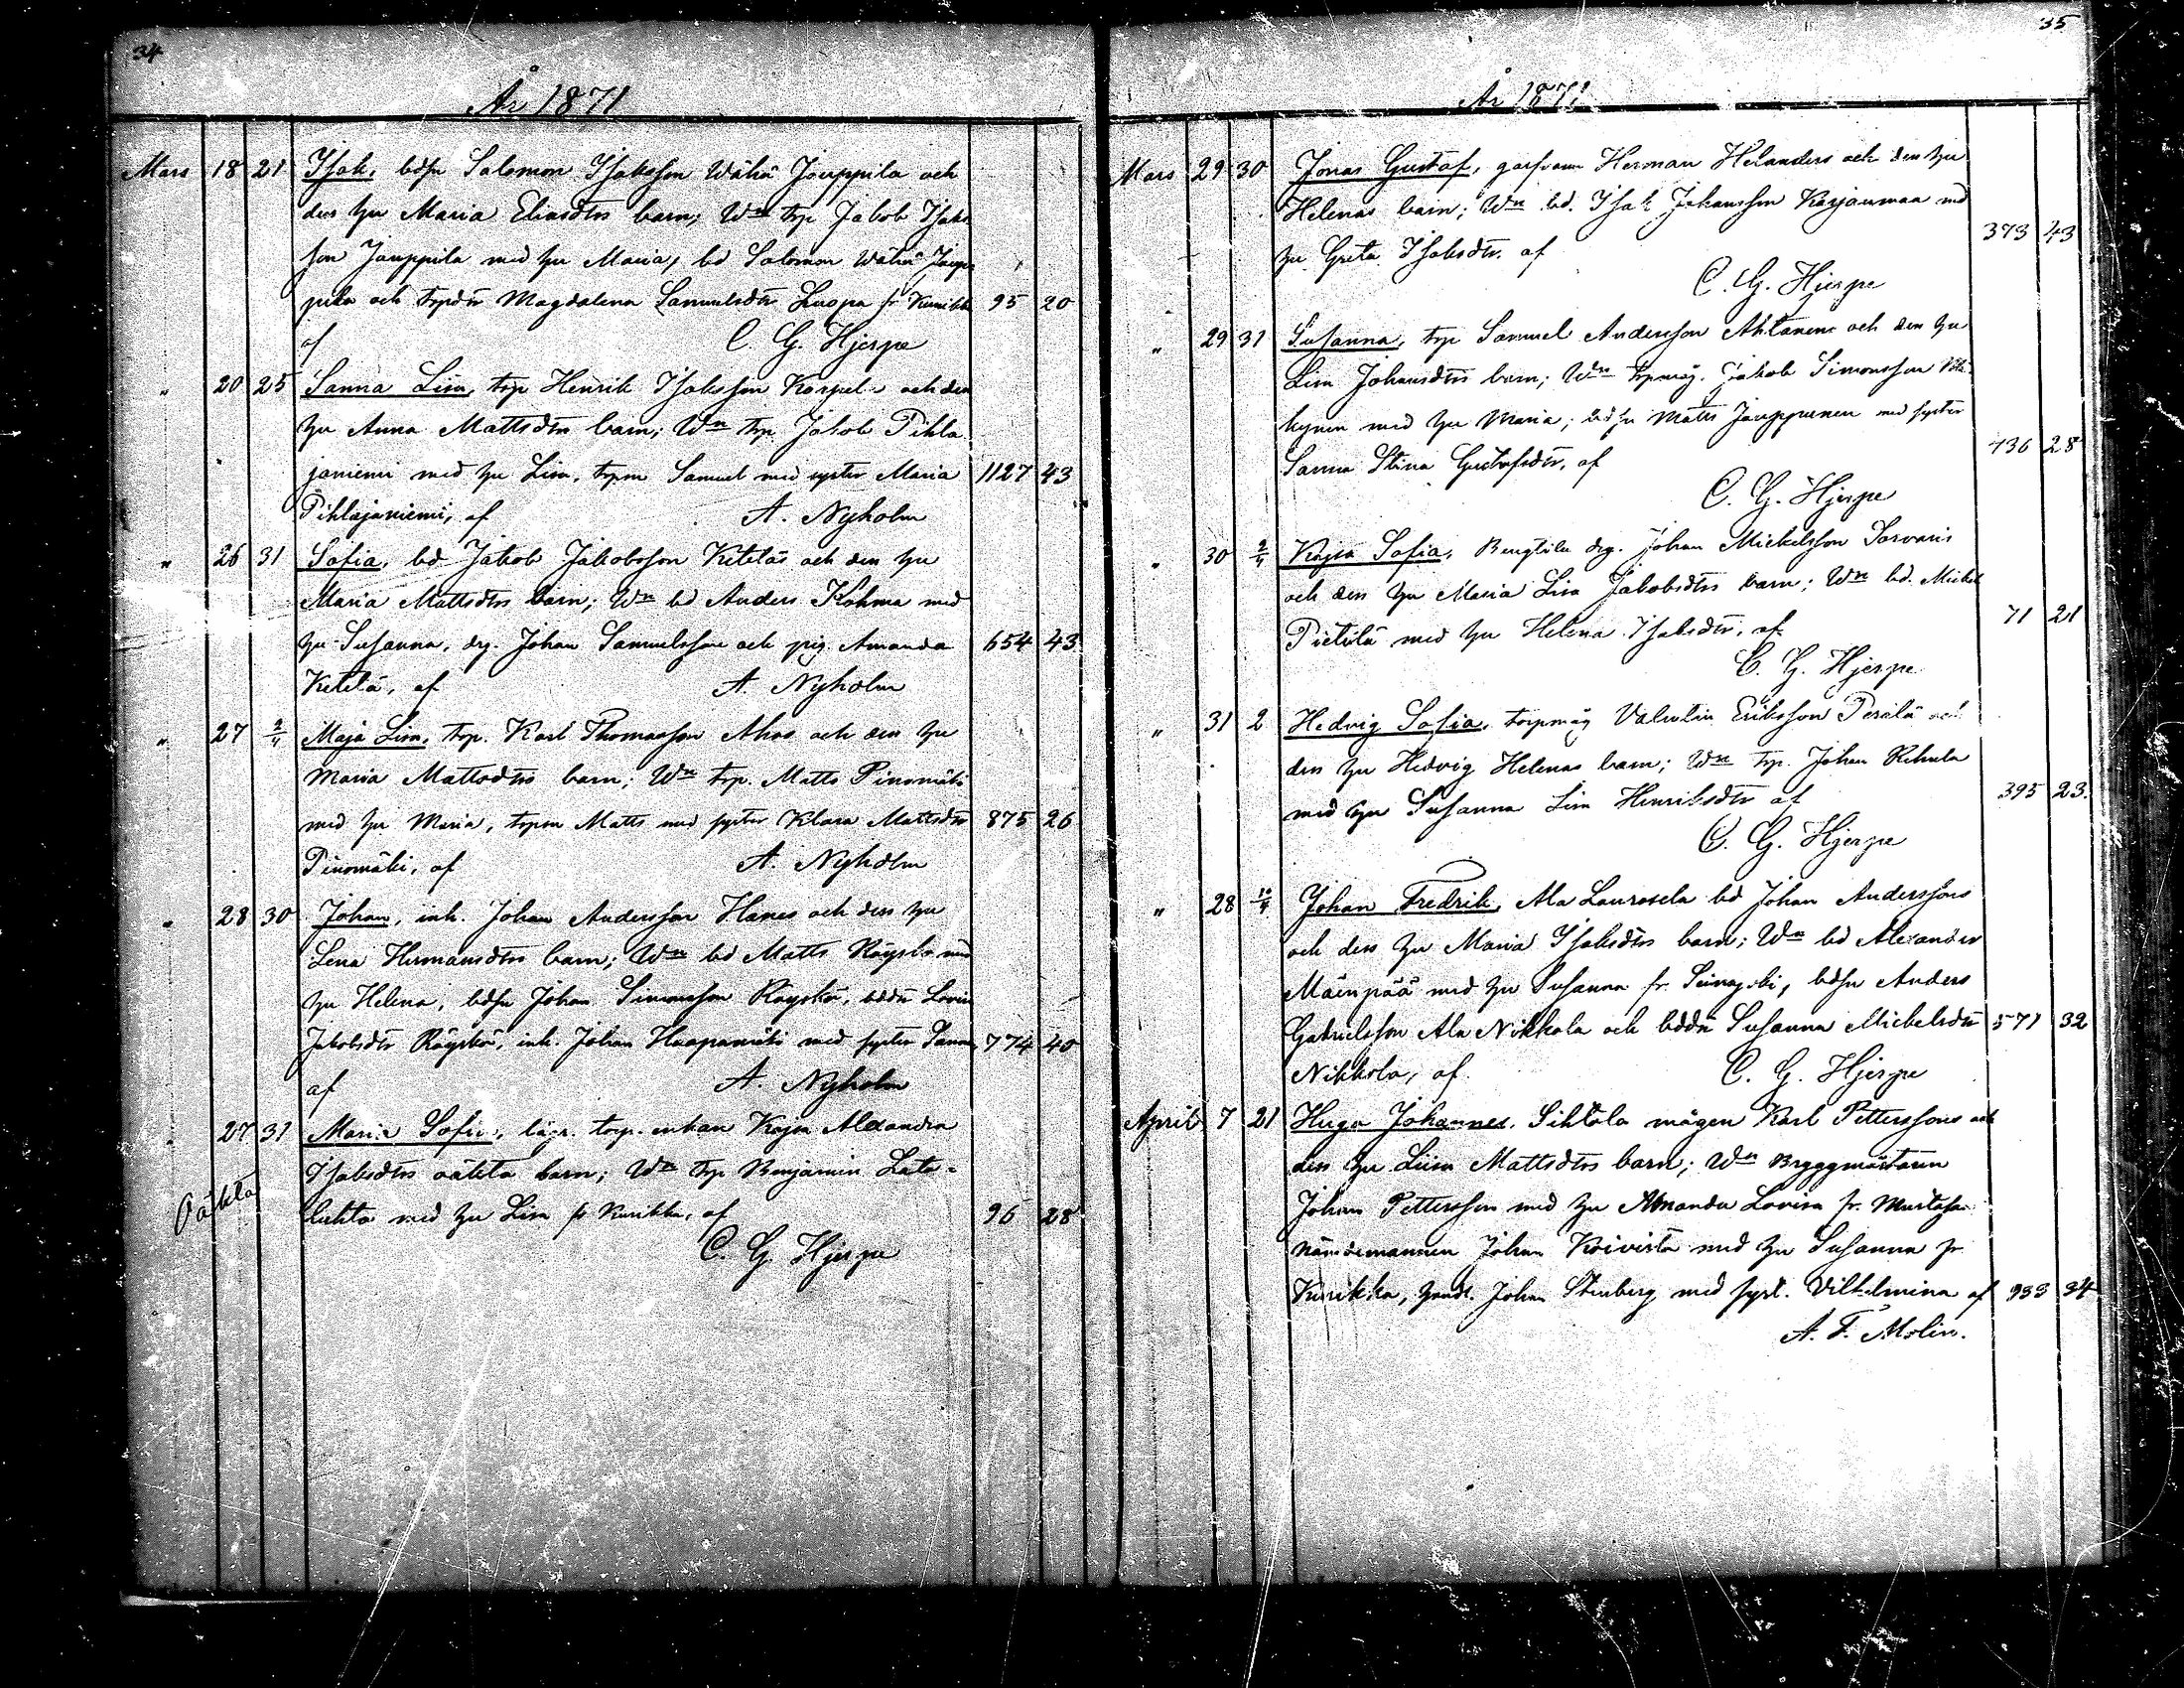 34
År 1871
Mars 18 21 Isak, bdsn Salomon Isaksson Wähä Jouppila och
dess hu Maria Eliasdtrs barn; Wn trp Jakob Isaks
son Jouppila med hu Maria, bd Salomon Wähä Joup
pila och trpdtr Magdalena Samuelsdtr Luopa fr Kurikka 95 20
af C. G. Hjerpe
" 20 25 Sanna Lisa, trp Henrik Isaksson Korpela och dess
hu Anna Mattsdtrs barn; Wn trp Jakob Pihla
janiemi med hu Lisa, trpsn Samuel med syster Maria 1127 43
Pihlajaniemi, af A. Nyholm
" 26 31 Sofia, bd Jakob Jakobsson Keteläs och dess hu
Maria Mattsdtrs barn; Wn bd Anders Kohma med
hu Susanna, drg. Johan Samuelsson och pig. Amanda 654 43
Ketelä, af A. Nyholm
" 27 2/4 Maja Lisa, trp. Karl Thomasson Ahos och dess hu
Maria Mattsdtrs barn; Wn trp. Matts Pinomäki
med hu Maria, trpsn Matts med syster Klara Mattsdtr 875 26
Pinomäki, af A. Nyholm
" 28 30 Johan, inh. Johan Andersson Hanes och dess hu
Lena Hermansdtrs barn; Wn bd Matts Röyskö med
hu Helena, bdsn Johan Simonsson Röyskö, bddtr Lovisa
Jakobsdtr Röyskö, inh. Johan Haapamäki med syster Sanna, 774 40
af A. Nyholm
" 27 31 Maria Sofia, lägr. torp. enkan Kajsa Alexandra
Isaksdtrs oäkta barn; Wn trp Benjamin Lato-
Oäkta luhta med hu Lisa fr Kurikka, af 96 28
C. G. Hjerpe
35
År 1871
Mars 29 30 Jonas Gustaf, garfvaren Herman Helanders och dess hu
Helenas barn; Wn bd. Isak Johansson Karjanmaa med
hu Greta Isaksdtr. af 373 43
C. G. Hjerpe
" 29 31 Susanna, trp Samuel Andersson Ahtanens och dess hu
Lisa Johansdtrs barn; Wn trpmåg. Jakob Simonsson
kynen med hu Maria; bdsn Matts Jouppunen med syster
Sanna Stina Gustafsdtr, af 436 28
C. G. Hjerpe
" 30 2/4 Kajsa Sofia, Bengtila drg. Johan Mickelsson Sorvaris
och dess hu Maria Lisa Jakobsdtrs barn; Wn bd. Mickel
Pietilä med hu Helena Isaksdtr, af 71 21
C. G. Hjerpe
" 31 2 Hedvig Sofia, torpmåg Valentin Eriksson Perälä och
dess hu Hedvig Helenas barn; Wn trp. Johan Rehula
med hu Susanna Lisa Henriksdtr af 395 23.
C. G. Hjerpe
" 28 10/4 Johan Fredrik, Ala Laurosela bd Johan Anderssons
och dess hu Maria Isaksdtrs barn; Wn bd Alexander
Mäenpää med hu Susanna fr. Seinäjoki, bdsn Anders
Gabrielsson Ala Nikkola och bddtr Susanna Mickelsdtr 571 32
Nikkola, af C. G. Hjerpe
April 7 21 Hugo Johannes, Sihtola mågen Karl Petterssons och
dess hu Liisa Mattsdtrs barn; Wn Bryggmästaren
Johan Pettersson med hu Amanda Lovisa fr. Mustasaari
nämdemannen Johan Koivisto med hu Susanna fr
Kurikka, handl. Johan Stenberg med syst. Vilhelmina af 933 34
A. F. Molin.